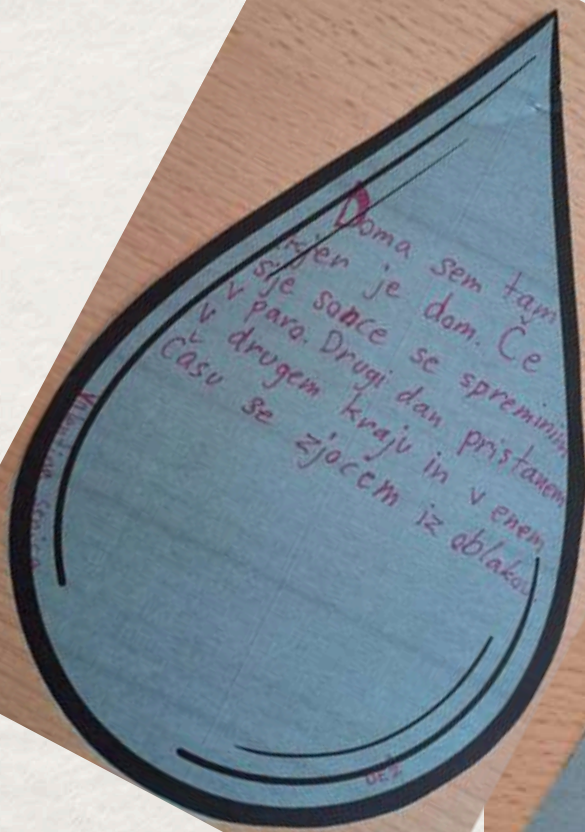 Doma sem tam
kjer je dom. Če
sije sonce se spreminim
v paro. Drugi dan pristanem
v drugem kraju in v enem
času se zjocem iz oblakov
DEŽ